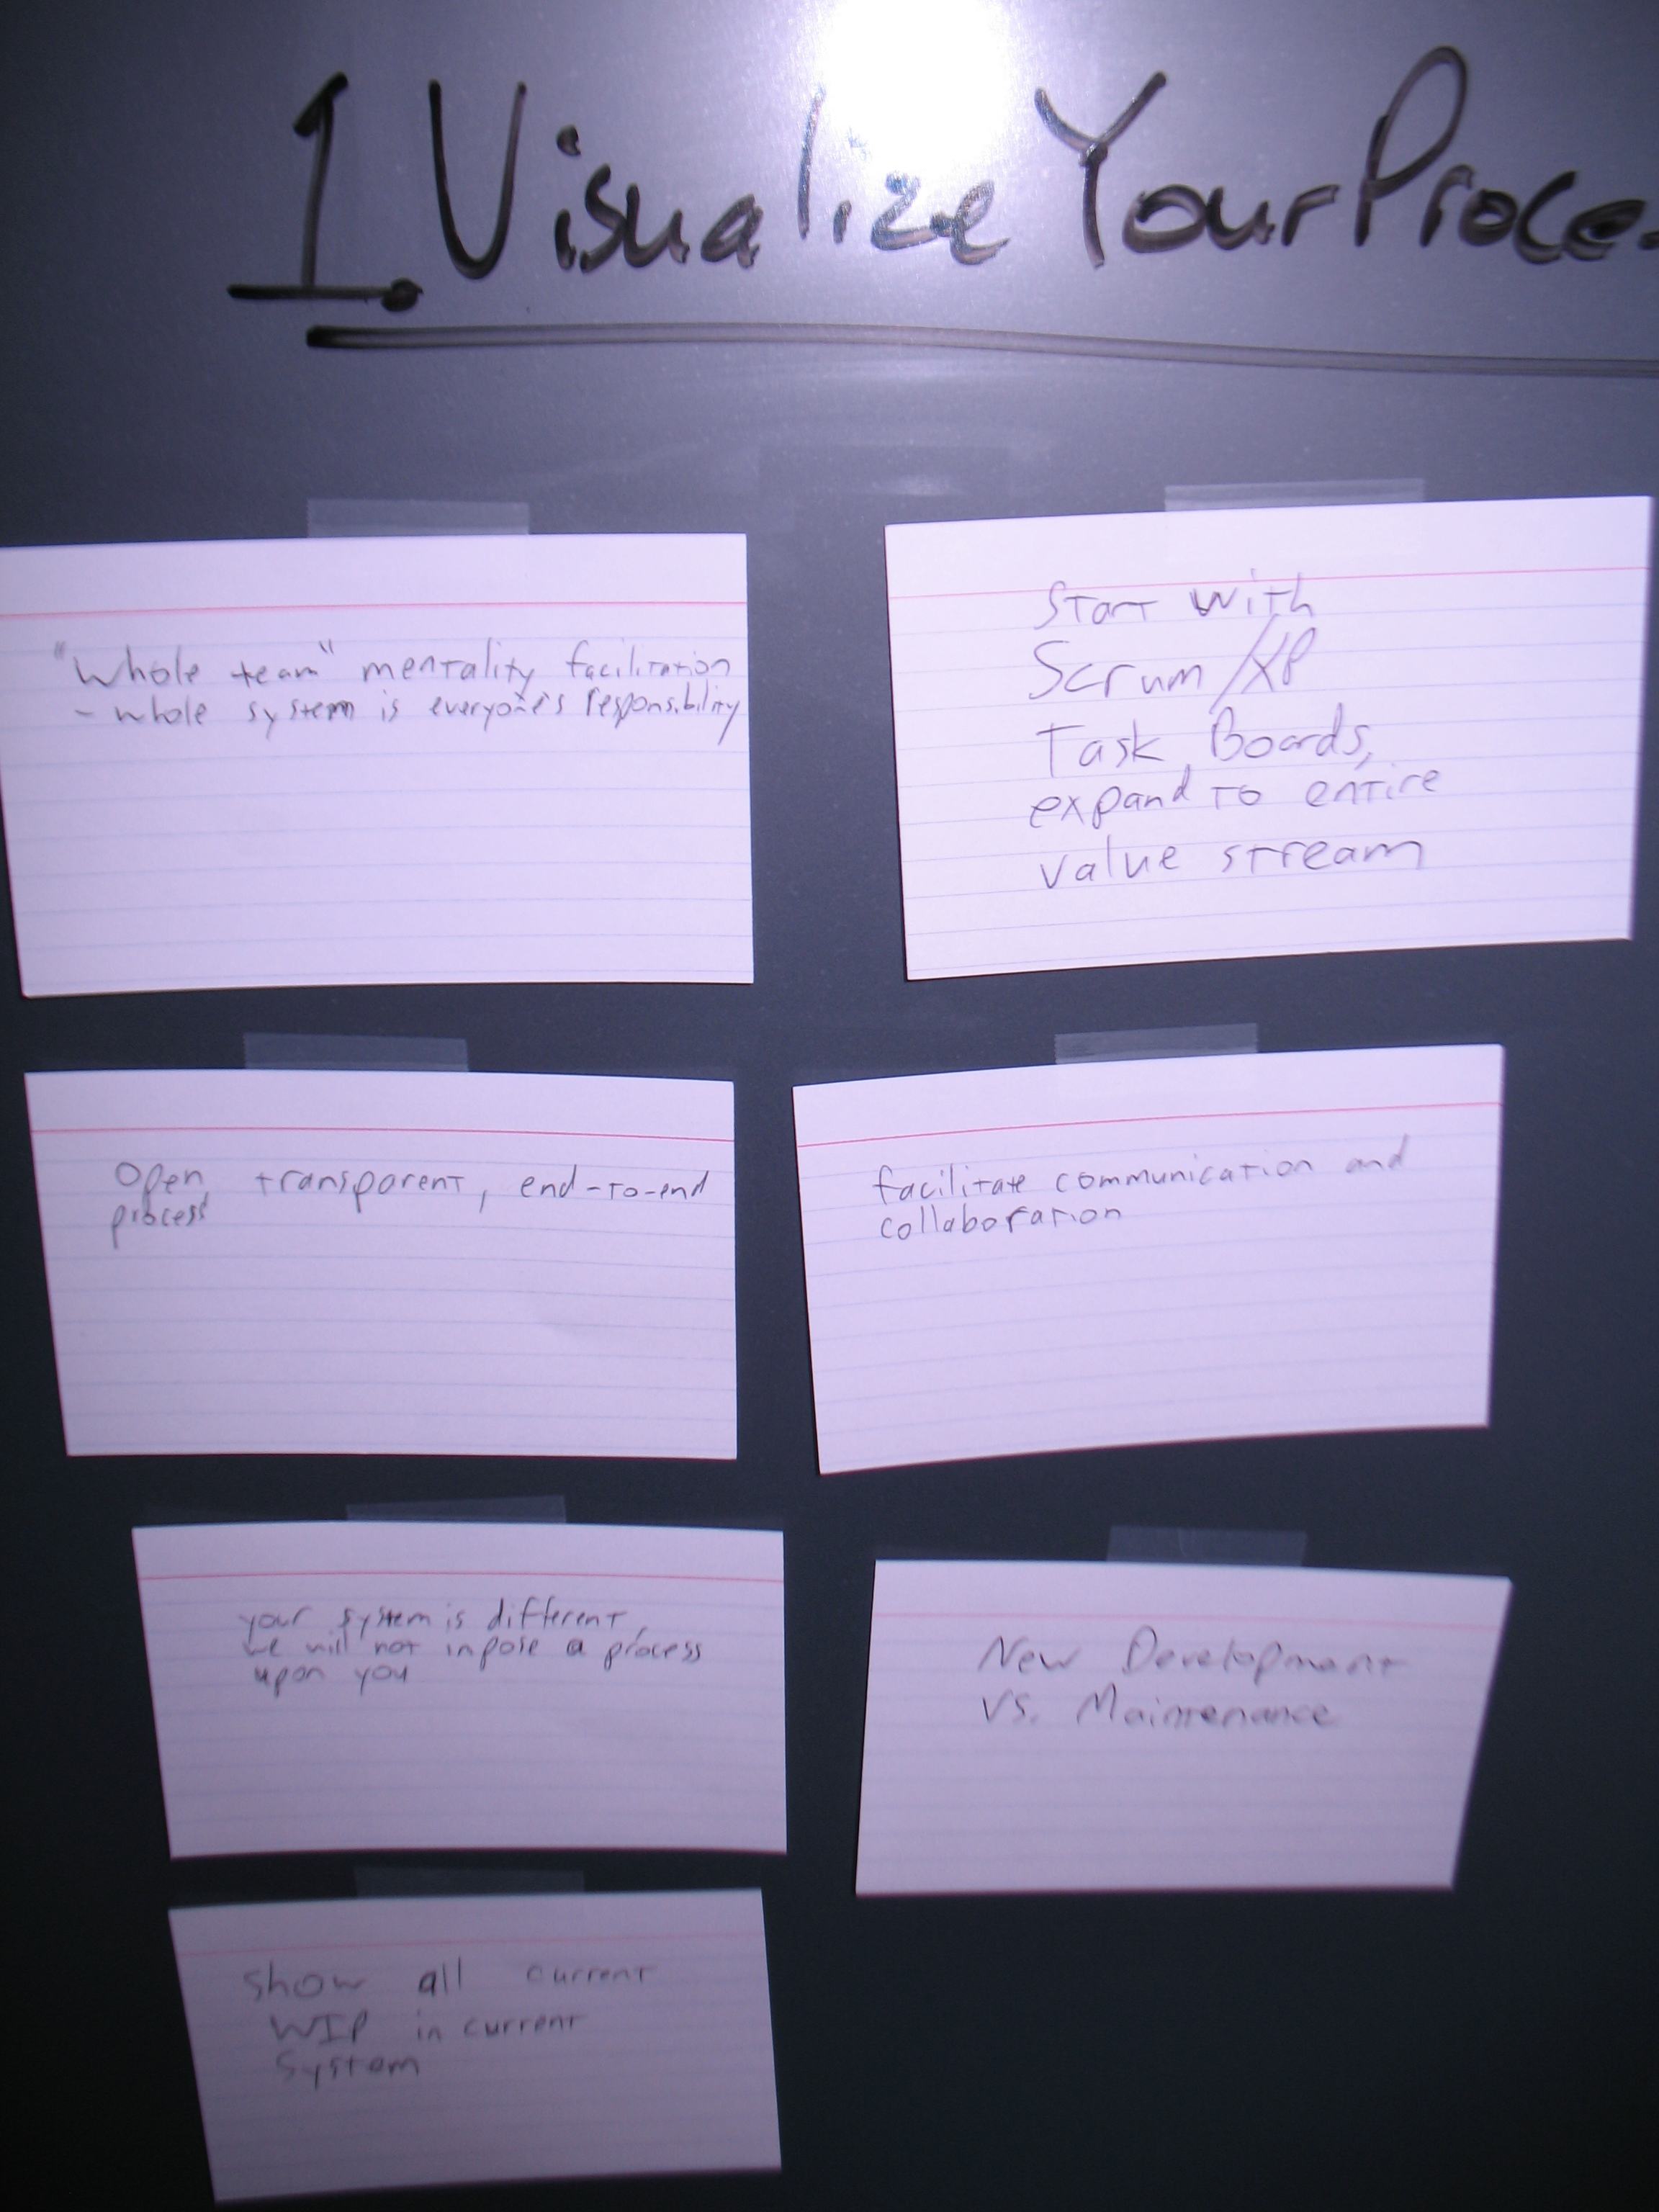 1. Visualize Your Proce
"Whole team" mentality facilitation
- whole system is everyone's responsibility
Start with
Scrum/XP
Task Boards,
expand to entire
value stream
Open transparent, end-to-end
process
facilitate communication and
collaboration
your system is different,
we will not impose a process
upon you
New Development
vs. Maintenance
show all current
WIP in current
System